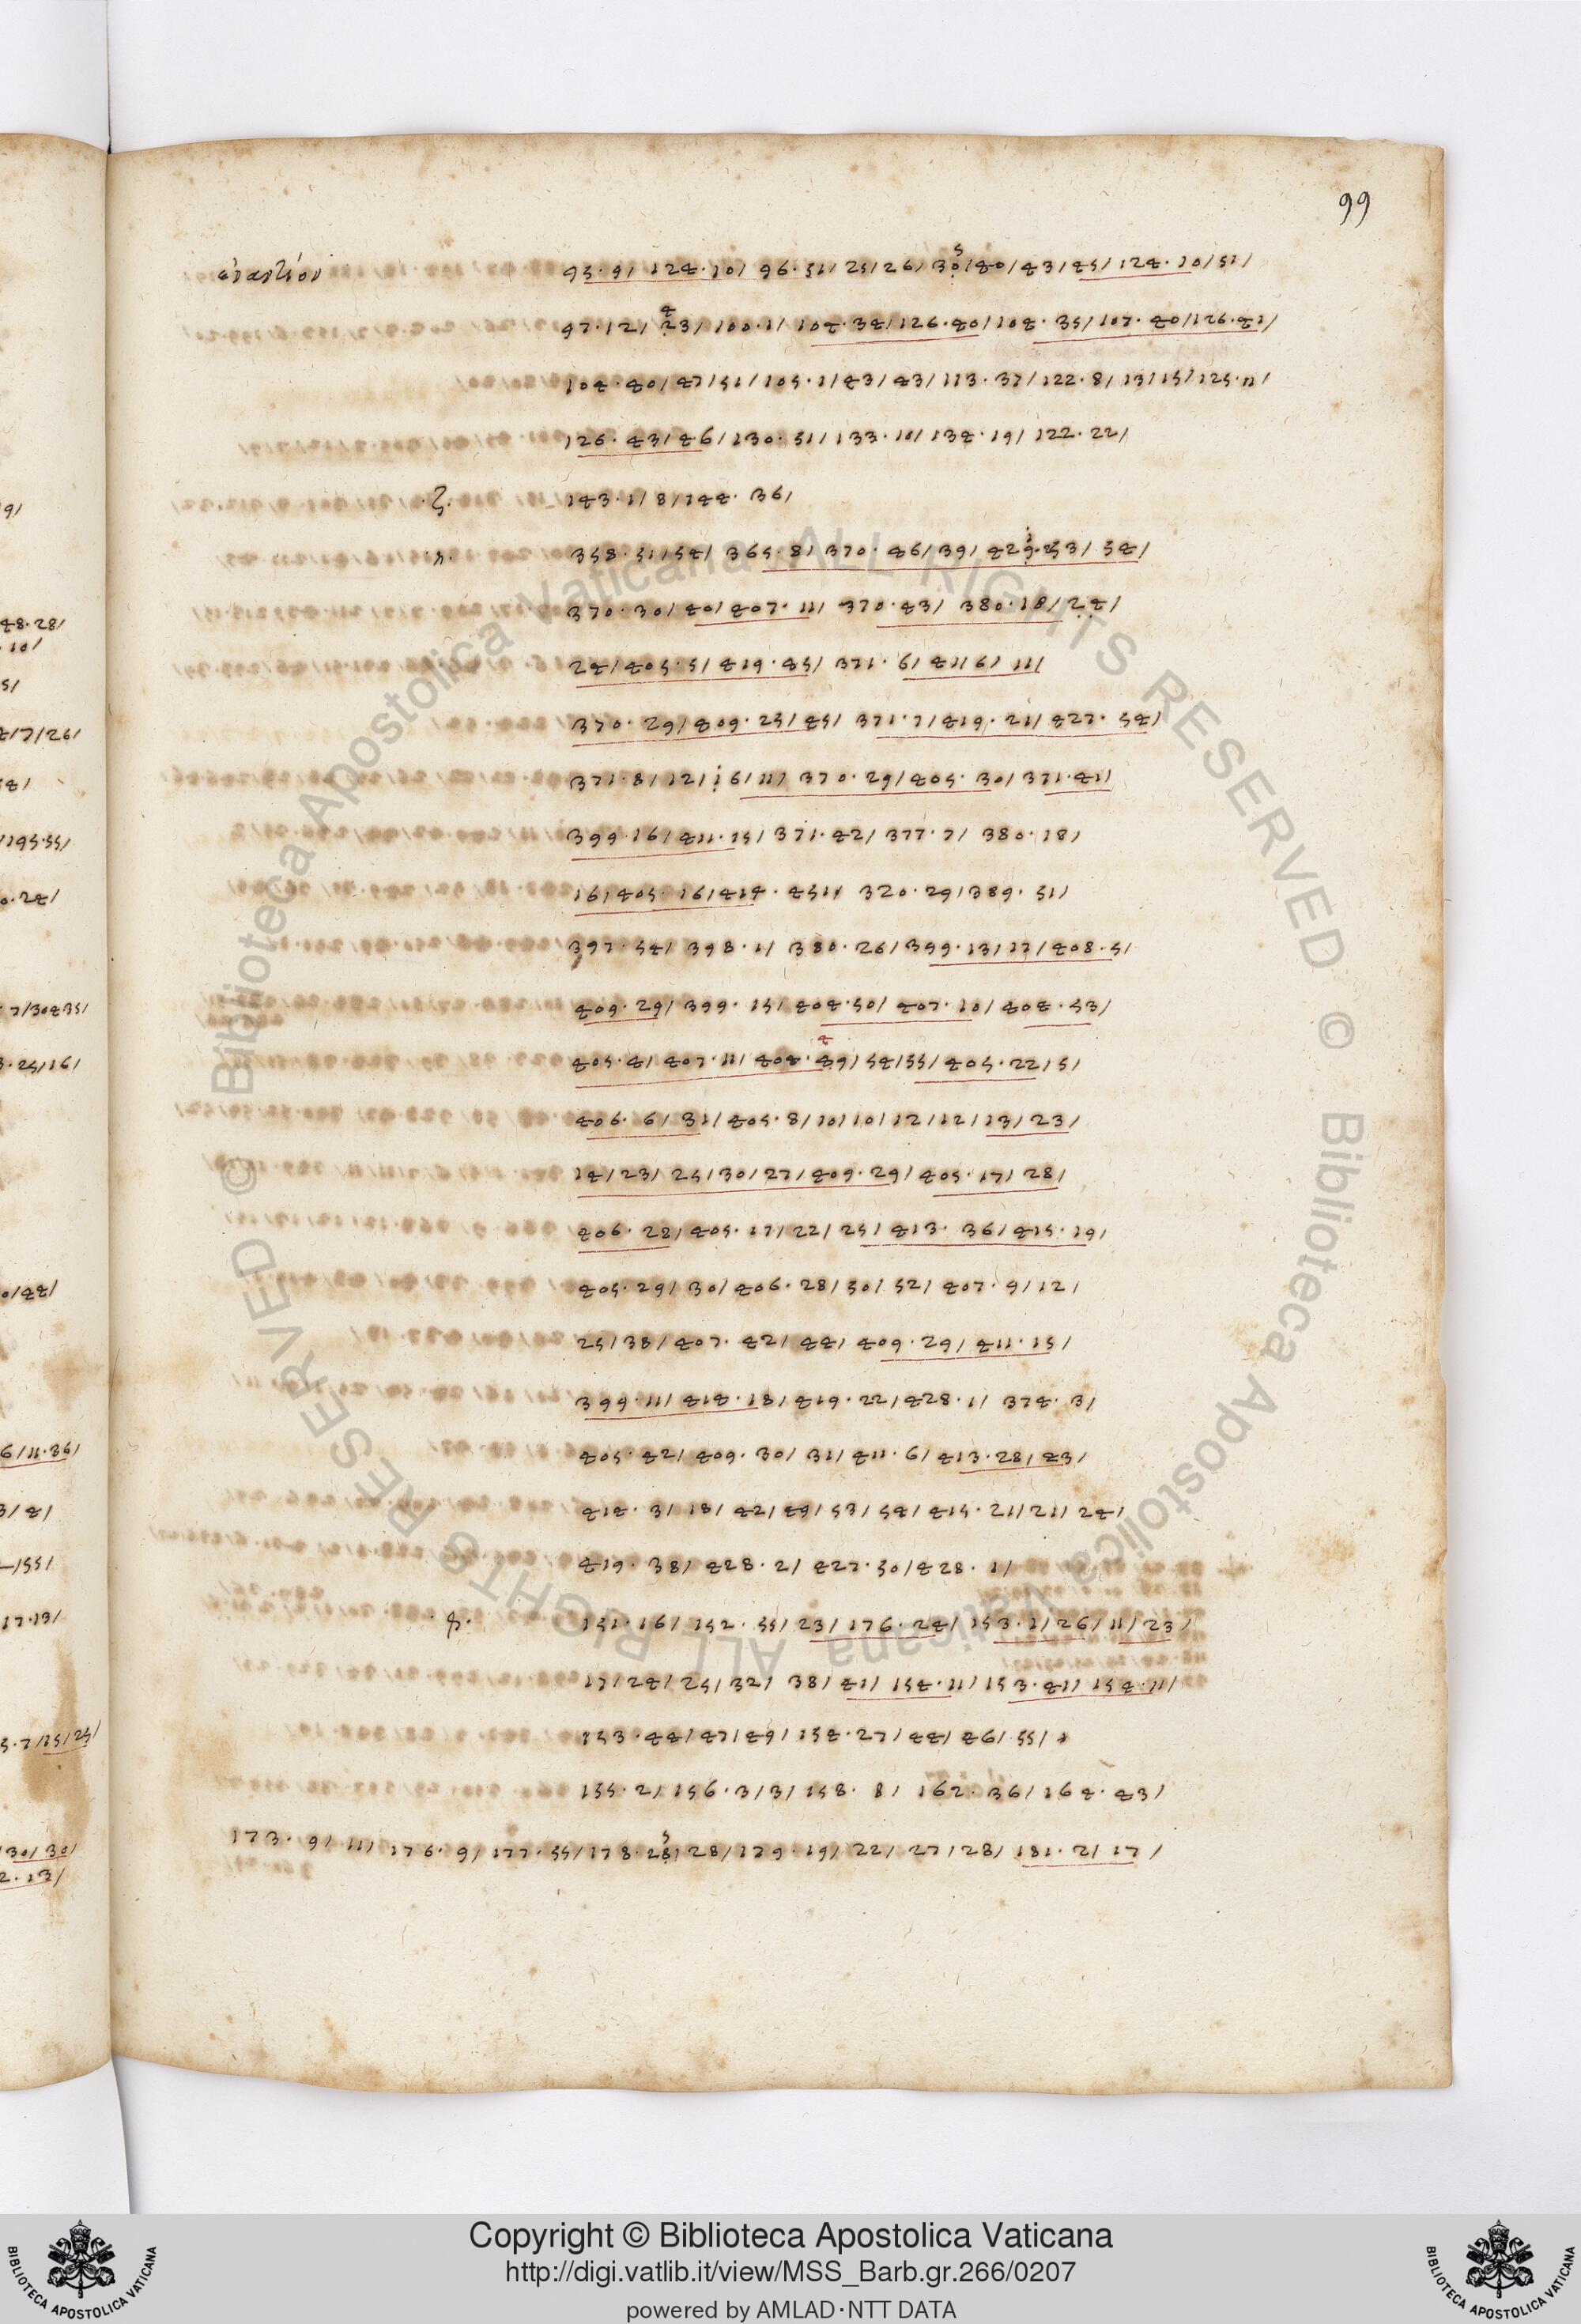 99
ἐναντίον 95.9/ 124.10/ 96.51/25/26/30/40/43/45/124.10/51/
97.12/23/100.1/104.34/126.40/104.35/107.40/126.41/
104.40/47/51/105.1/43/43/113.37/122.8/13/15/125.11/
126.43/46/130.51/133.10/134.19/122.22/
.ζ. 143.1/8/144.36/
358.51/54/365.8/370.46/39/429.53/54/
370.30/40/407.11/370.43/380.18/24/
24/405.5/419.45/371.6/41/6/11/
370.29/409.25/45/371.7/419.21/427.54/
371.8/12/16/11/370.29/405.30/371.41/
399.16/411.15/371.42/377.7/380.18/
16/405.16/414.451/320.29/389.51/
397.54/398.1/380.26/399.13/17/408.5/
409.29/399.15/404.50/407.10/404.53/
405.4/407.11/404.49/54/55/405.22/5/
406.6/31/405.8/10/10/12/12/13/23/
14/23/25/30/27/409.29/405.17/28/
406.28/405.17/22/25/413.36/415.19/
405.29/30/406.28/50/52/407.9/12/
25/38/407.42/44/409.29/411.15/
399.11/414.18/419.22/428.1/374.3/
405.42/409.30/31/411.6/413.28/43/
414.3/18/42/49/53/54/415.21/21/24/
419.38/428.2/427.50/428.1/
151.16/152.55/23/176.24/153.1/26/11/23/
17/24/25/32/38/41/154.11/153.41/154.11/
153.44/47/49/154.27/44/46/55/
155.2/156.3/3/158.8/162.36/164.43/
173.9/11/176.9/177.55/178.28/28/179.19/22/27/28/181.2/17/
48.28/
.10/
7/26/
195.55/
0.24/
7/30435/
25/16/
44/
6/11.36/
17.13/
5.7/15/25/
30/30/
2.13/
© Biblioteca Apostolica Vaticana ALL RIGHTS RESERVED
© Biblioteca Apostolica Vaticana ALL RIGHTS RESERVED
Copyright © Biblioteca Apostolica Vaticana
http://digi.vatlib.it/view/MSS_Barb.gr.266/0207
powered by AMLAD·NTT DATA
BIBLIOTECA APOSTOLICA VATICANA
BIBLIOTECA APOSTOLICA VATICANA